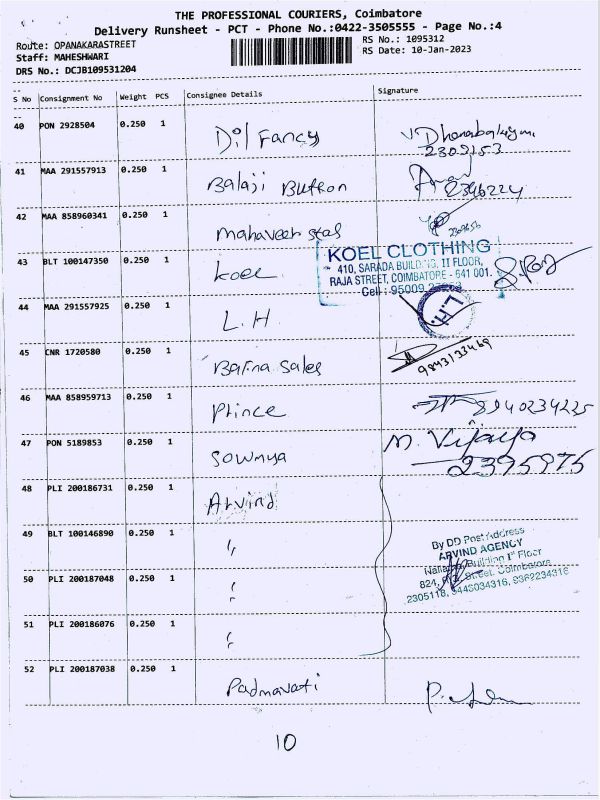 THE PROFESSIONAL COURIERS, Coimbatore
Delivery Runsheet - PCT - Phone No.:0422-3505555 - Page No.:4
Route: OPANAKARASTREET
RS No.: 1095312
Staff: MAHESHWARI
RS Date: 10-Jan-2023
DRS No.: DCJB109531204
S No Consignment No Weight PCS Consignee Details Signature
40 PON 2928504 0.250 1 Dil Fancy
2309153
41 MAA 291557913 0.250 1 Balaji Button 2346224
42 MAA 858960341 0.250 1 Mahaveer
43 BLT 100147350 0.250 1 Koel
KOEL CLOTHING
410, SARADA BUILDING, II FLOOR,
RAJA STREET, COIMBATORE - 641 001.
Cell : 95009
44 MAA 291557925 0.250 1 L.H L.H.
45 CNR 1720580 0.250 1 Bafna Sales 9843133469
46 MAA 858959713 0.250 1 Prince 8940234225
47 PON 5189853 0.250 1 Sowmya M. Vijaya
2395975
48 PLI 200186731 0.250 1 Arvind
49 BLT 100146890 0.250 1 "
By DD Post Address
ARVIND AGENCY
Building 1st Floor
824, Street, Coimbatore
2305118, 9443034316, 9362234316
50 PLI 200187048 0.250 1 "
51 PLI 200186076 0.250 1 "
52 PLI 200187038 0.250 1 Padmavati
10